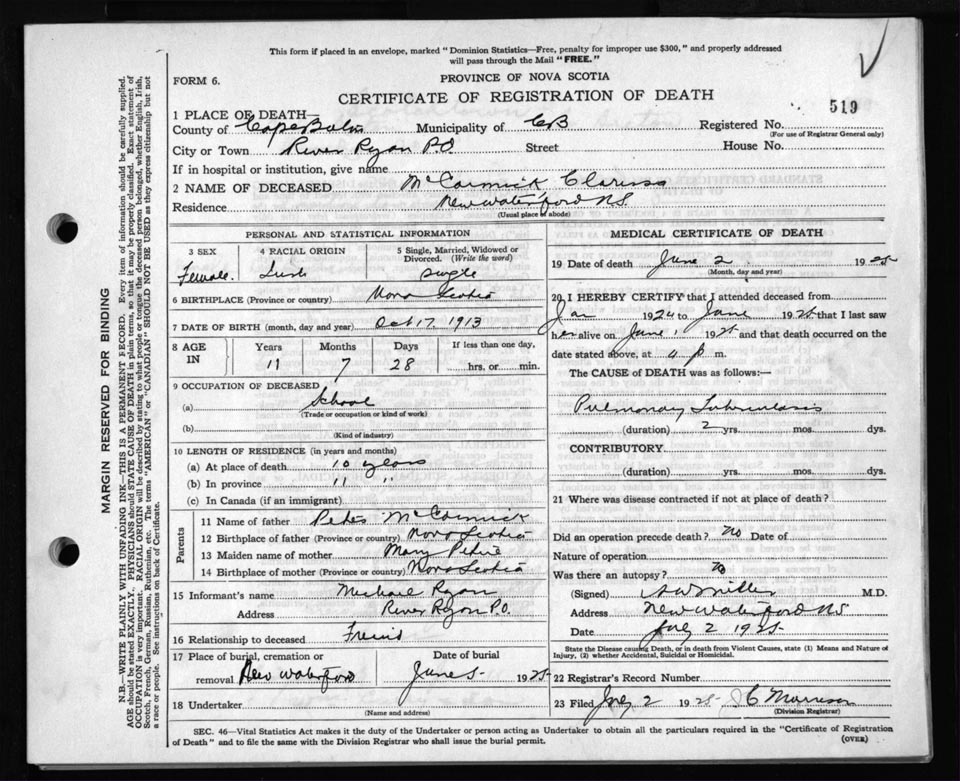 This form if placed in an envelope, marked "Dominion Statistics—Free, penalty for improper use $300," and properly addressed
will pass through the Mail "FREE."
FORM 6.
PROVINCE OF NOVA SCOTIA
CERTIFICATE OF REGISTRATION OF DEATH
519
1 PLACE OF DEATH—
County of Cape Breton Municipality of CB Registered No.
(For use of Registrar General only)
City or Town River Ryan P.O. Street House No.
If in hospital or institution, give name
2 NAME OF DECEASED McCormick Clarissa
Residence New Waterford N.S.
(Usual place of abode)
PERSONAL AND STATISTICAL INFORMATION
3 SEX
Female.
4 RACIAL ORIGIN
Irish
5 Single, Married, Widowed or
Divorced. (Write the word)
Single
6 BIRTHPLACE (Province or country) Nova Scotia
7 DATE OF BIRTH (month, day and year) Oct 17. 1913
8 AGE
IN
Years Months Days If less than one day,
11 7 28 hrs. or min.
9 OCCUPATION OF DECEASED
(a) School
(Trade or occupation or kind of work)
(b)
(Kind of industry)
10 LENGTH OF RESIDENCE (in years and months)
(a) At place of death 10 years
(b) In province 11 "
(c) In Canada (if an immigrant)
Parents
11 Name of father Peter McCormick
12 Birthplace of father (Province or country) Nova Scotia
13 Maiden name of mother Mary
14 Birthplace of mother (Province or country) Nova Scotia
15 Informant's name Michael Ryan
Address River Ryan P.O.
16 Relationship to deceased Friend
17 Place of burial, cremation or
removal New Waterford
Date of burial
June 5 1925
18 Undertaker
(Name and address)
MEDICAL CERTIFICATE OF DEATH
19 Date of death June 2 1925
(Month, day and year)
20 I HEREBY CERTIFY that I attended deceased from
Jan 1924 to June 1925 that I last saw
her alive on June 1 1925 and that death occurred on the
date stated above, at 4 p m.
The CAUSE of DEATH was as follows:—
Pulmonary Tuberculosis
(duration) 2 yrs. mos. dys.
CONTRIBUTORY
(duration) yrs. mos. dys.
21 Where was disease contracted if not at place of death?
Did an operation precede death? No Date of
Nature of operation
Was there an autopsy? No
(Signed) Miller M.D.
Address New Waterford NS
Date July 2 1925
State the Disease causing Death, or in death from Violent Causes, state (1) Means and Nature of
Injury, (2) whether Accidental, Suicidal or Homicidal.
22 Registrar's Record Number
23 Filed July 2 1925
(Division Registrar)
SEC. 46—Vital Statistics Act makes it the duty of the Undertaker or person acting as Undertaker to obtain all the particulars required in the "Certificate of Registration
of Death" and to file the same with the Division Registrar who shall issue the burial permit.
(OVER)
MARGIN RESERVED FOR BINDING
N.B.—WRITE PLAINLY WITH UNFADING INK—THIS IS A PERMANENT RECORD. Every item of information should be carefully supplied.
AGE should be stated EXACTLY. PHYSICIANS should STATE CAUSE OF DEATH in plain terms, so that it may be properly classified. Exact statement of
OCCUPATION is very important. RACIAL ORIGIN will be described by stating to what people or tongue the deceased person belonged, whether English, Irish,
Scotch, French, German, Russian, Ruthenian, etc. The terms "AMERICAN" or "CANADIAN" SHOULD NOT BE USED as they express citizenship but not
a race or people. See instructions on back of Certificate.